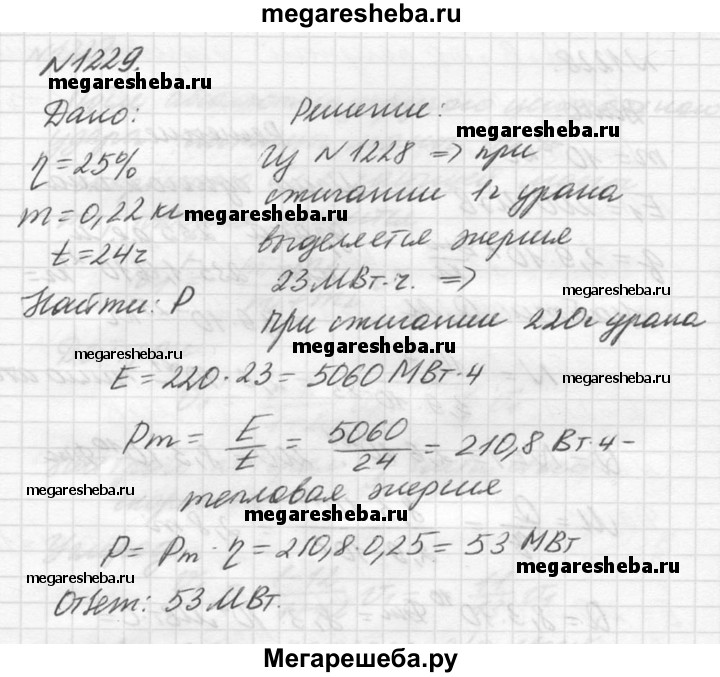 megaresheba.ru
№1229.
megaresheba.ru
Дано:
Решение:
megaresheba.ru
η = 25%
Из №1228 => при
m = 0,22 кг
megaresheba.ru
сжигании 1г урана
t = 24ч
выделяется энергия
23 МВт·ч. =>
megaresheba.ru
Найти: P
при сжигании 220г урана
megaresheba.ru
E = 220 · 23 = 5060 МВт·ч
megaresheba.ru
Pт = E/t = 5060/24 = 210,8 Вт·ч -
megaresheba.ru
тепловая энергия
megaresheba.ru
P = Pт · η = 210,8 · 0,25 = 53 МВт
megaresheba.ru
megaresheba.ru
Ответ: 53 МВт.
Мегарешеба.ру